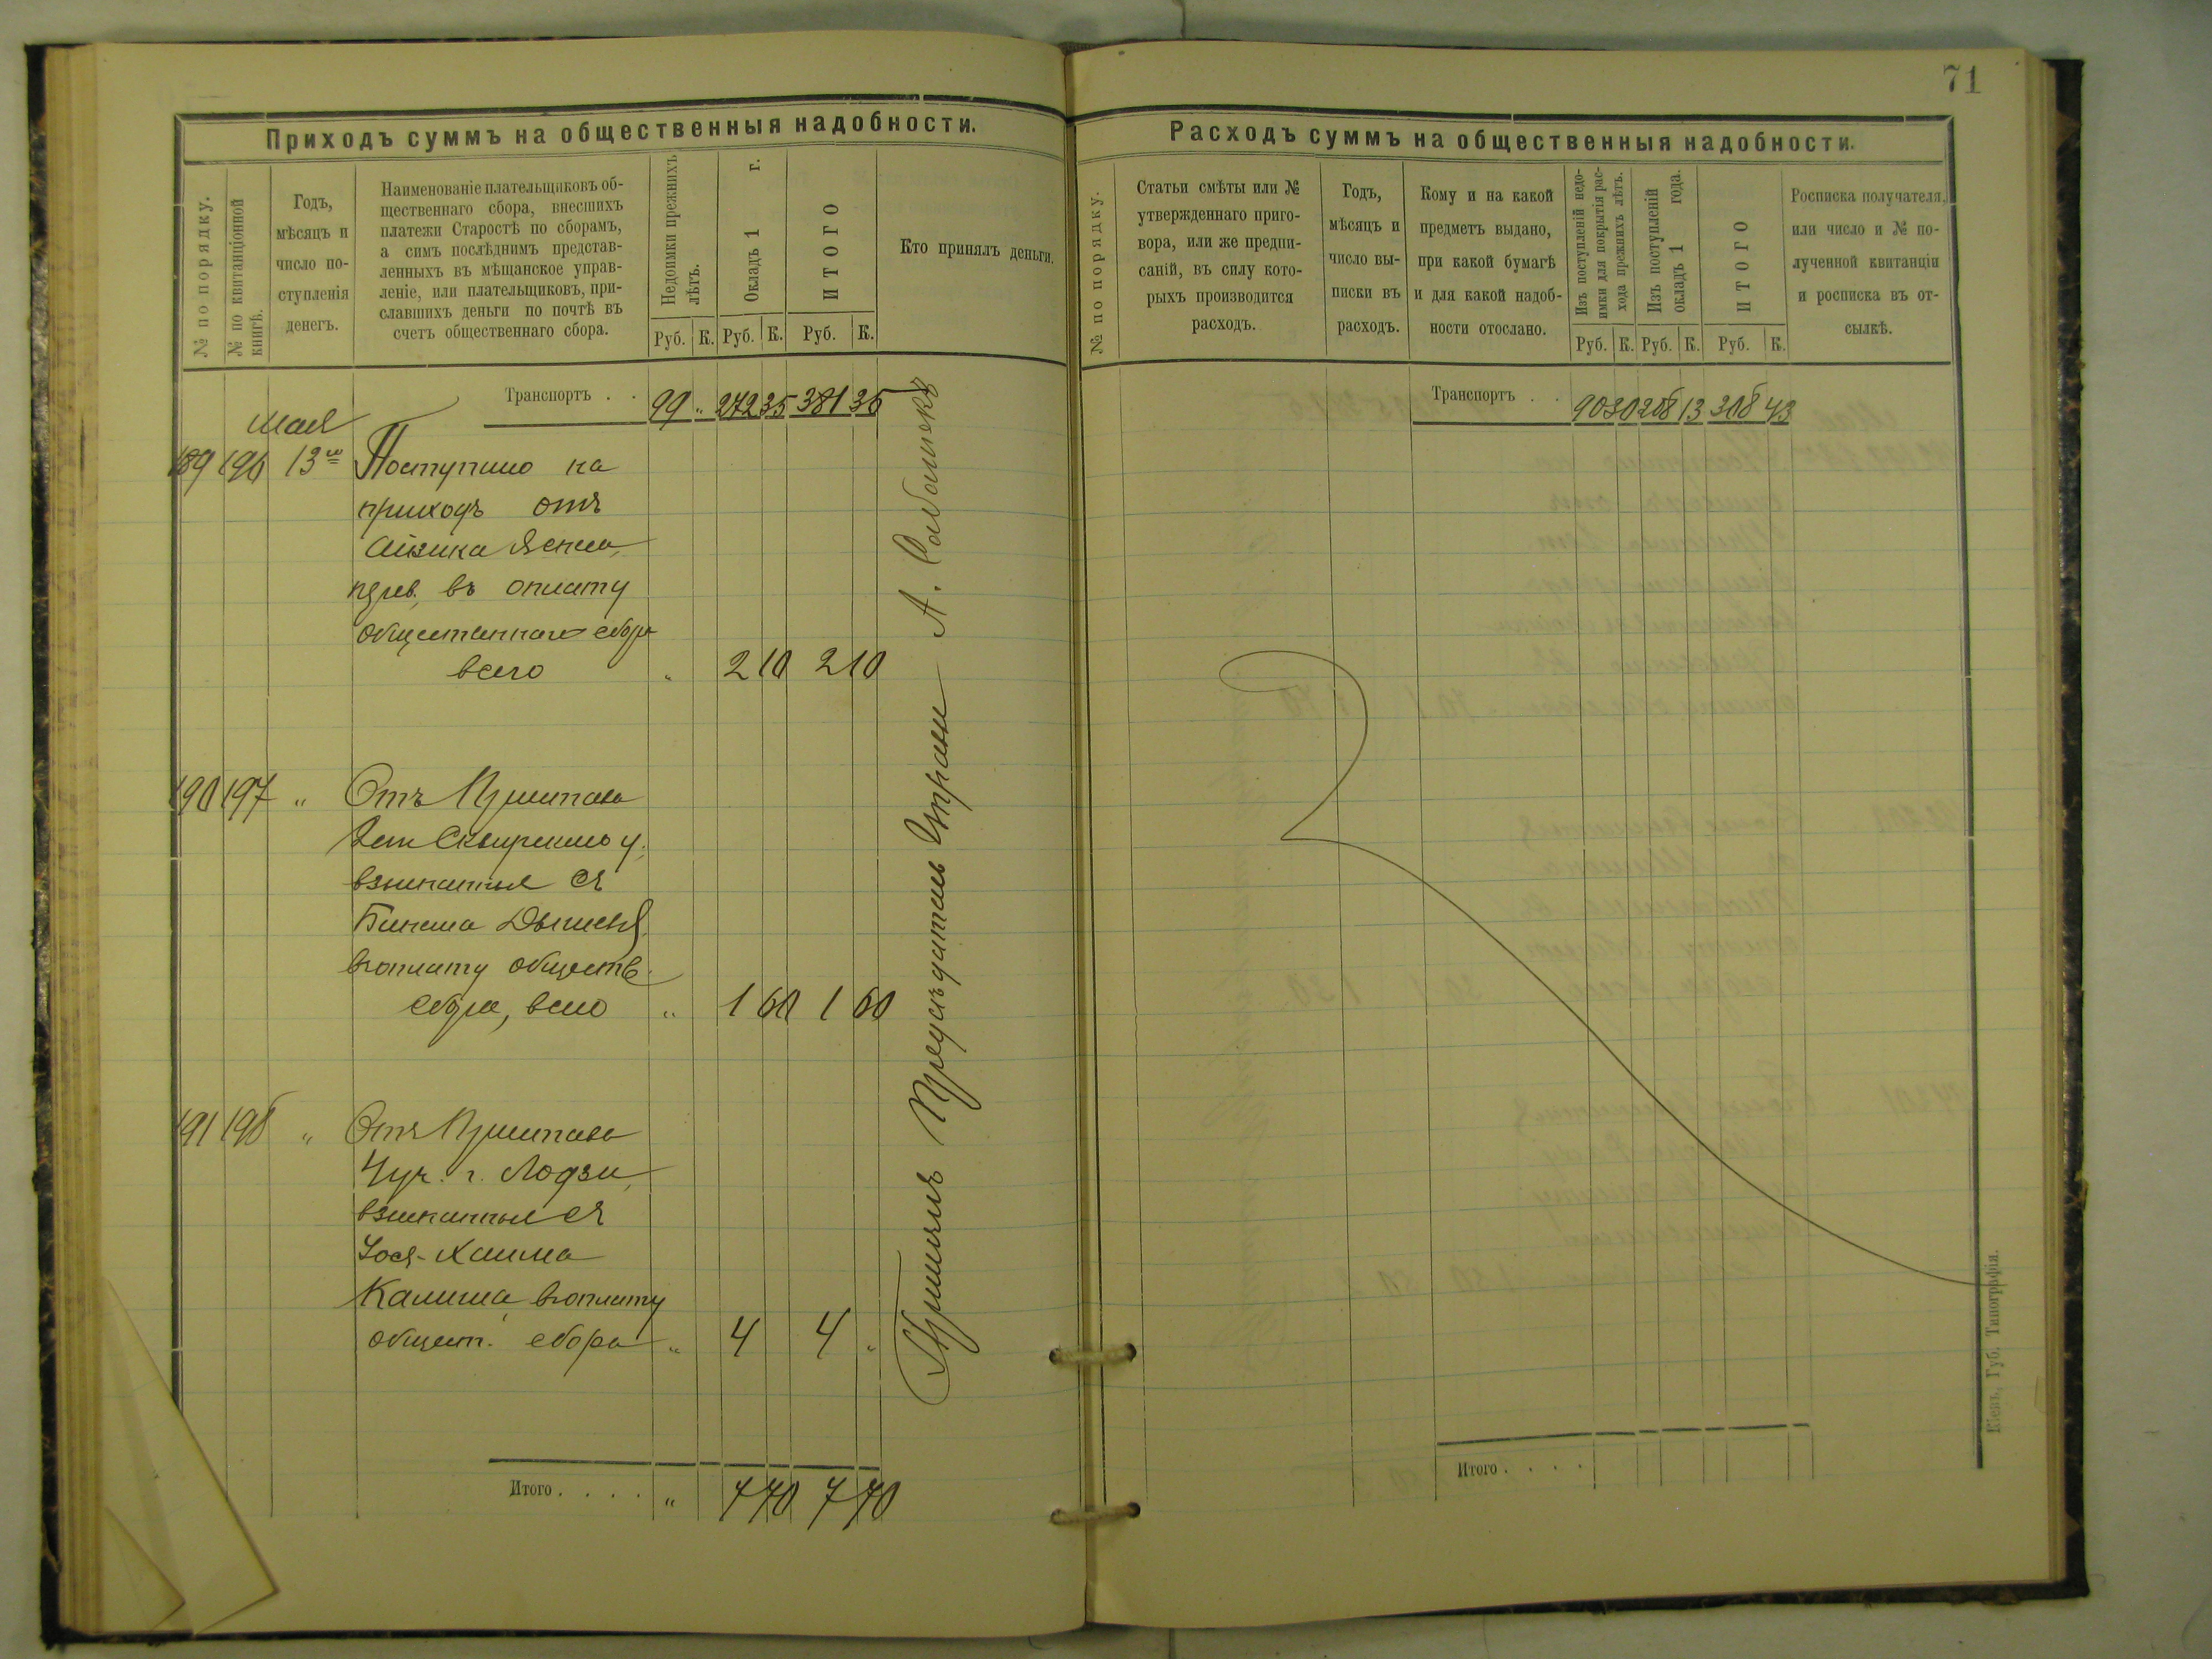 71
Приходъ суммъ на общественныя надобности.
№ по порядку.
№ по квитанціонной
книгѣ.
Годъ,
мѣсяцъ и
число по-
ступленія
денегъ.
Наименованіе плательщиковъ об-
щественнаго сбора, внесшихъ
платежи Старостѣ по сборамъ,
а симъ послѣднимъ представ-
ленныхъ въ мѣщанское управ-
леніе, или плательщиковъ, при-
славшихъ деньги по почтѣ въ
счетъ общественнаго сбора.
Недоимки прежнихъ
лѣтъ.
Окладъ 1 г.
ИТОГО
Руб. К. Руб. К. Руб. К.
Кто принялъ деньги.
Транспортъ . . 99 „ 272 35 381 35
мая
189 196 13го Поступило на
приходъ отъ
Айзика
въ оплату
общественнаго сбора
всего „ 2 10 2 10
190 197 „ Отъ Пристава
2 ст. Сквирскаго у.
взысканные съ
въ оплату обществ.
сбора, всего „ 1 60 1 60
191 198 „ Отъ Пристава
4 уч. г. Лодзи,
взысканные съ
Іося-Хаима
Калиша, въ оплату
общест. сбора „ 4 4 „
Итого . . . . „ 7 70 7 70
Принялъ Предсѣдатель Управы А.
Расходъ суммъ на общественныя надобности.
№ по порядку.
Статьи смѣты или №
утвержденнаго приго-
вора, или же предпи-
саній, въ силу кото-
рыхъ производится
расходъ.
Годъ,
мѣсяцъ и
число вы-
писки въ
расходъ.
Кому и на какой
предметъ выдано,
при какой бумагѣ
и для какой надоб-
ности отослано.
Изъ поступленій недо-
имки для покрытія рас-
хода прежнихъ лѣтъ.
Изъ поступленій
окладъ 1 года.
ИТОГО
Руб. К. Руб. К. Руб. К.
Росписка получателя,
или число и № по-
лученной квитанціи
и росписка въ от-
сылкѣ.
Транспортъ . . 90 30 208 13 308 43
Итого . . . .
Кіевъ, Губ. Типографія.